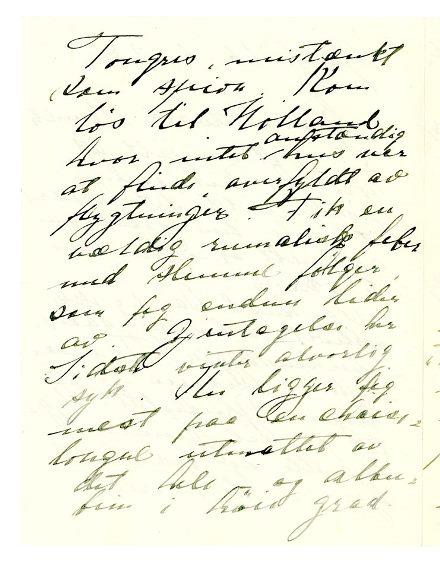 Tongres, mistænkt
som spion. Kom
løs til Holland
anstændig
hvor intet hus var
at finde, overfyldt av
flygtninger. Fik en
vældig rumatisk feber
med slemme følger,
som jeg endnu lider
av. Gjentagelse her
Sidste vinter alvorlig
syk. Nu ligger jeg
mest paa en chaise-
longue utmattet av
det hele og
i høi grad.